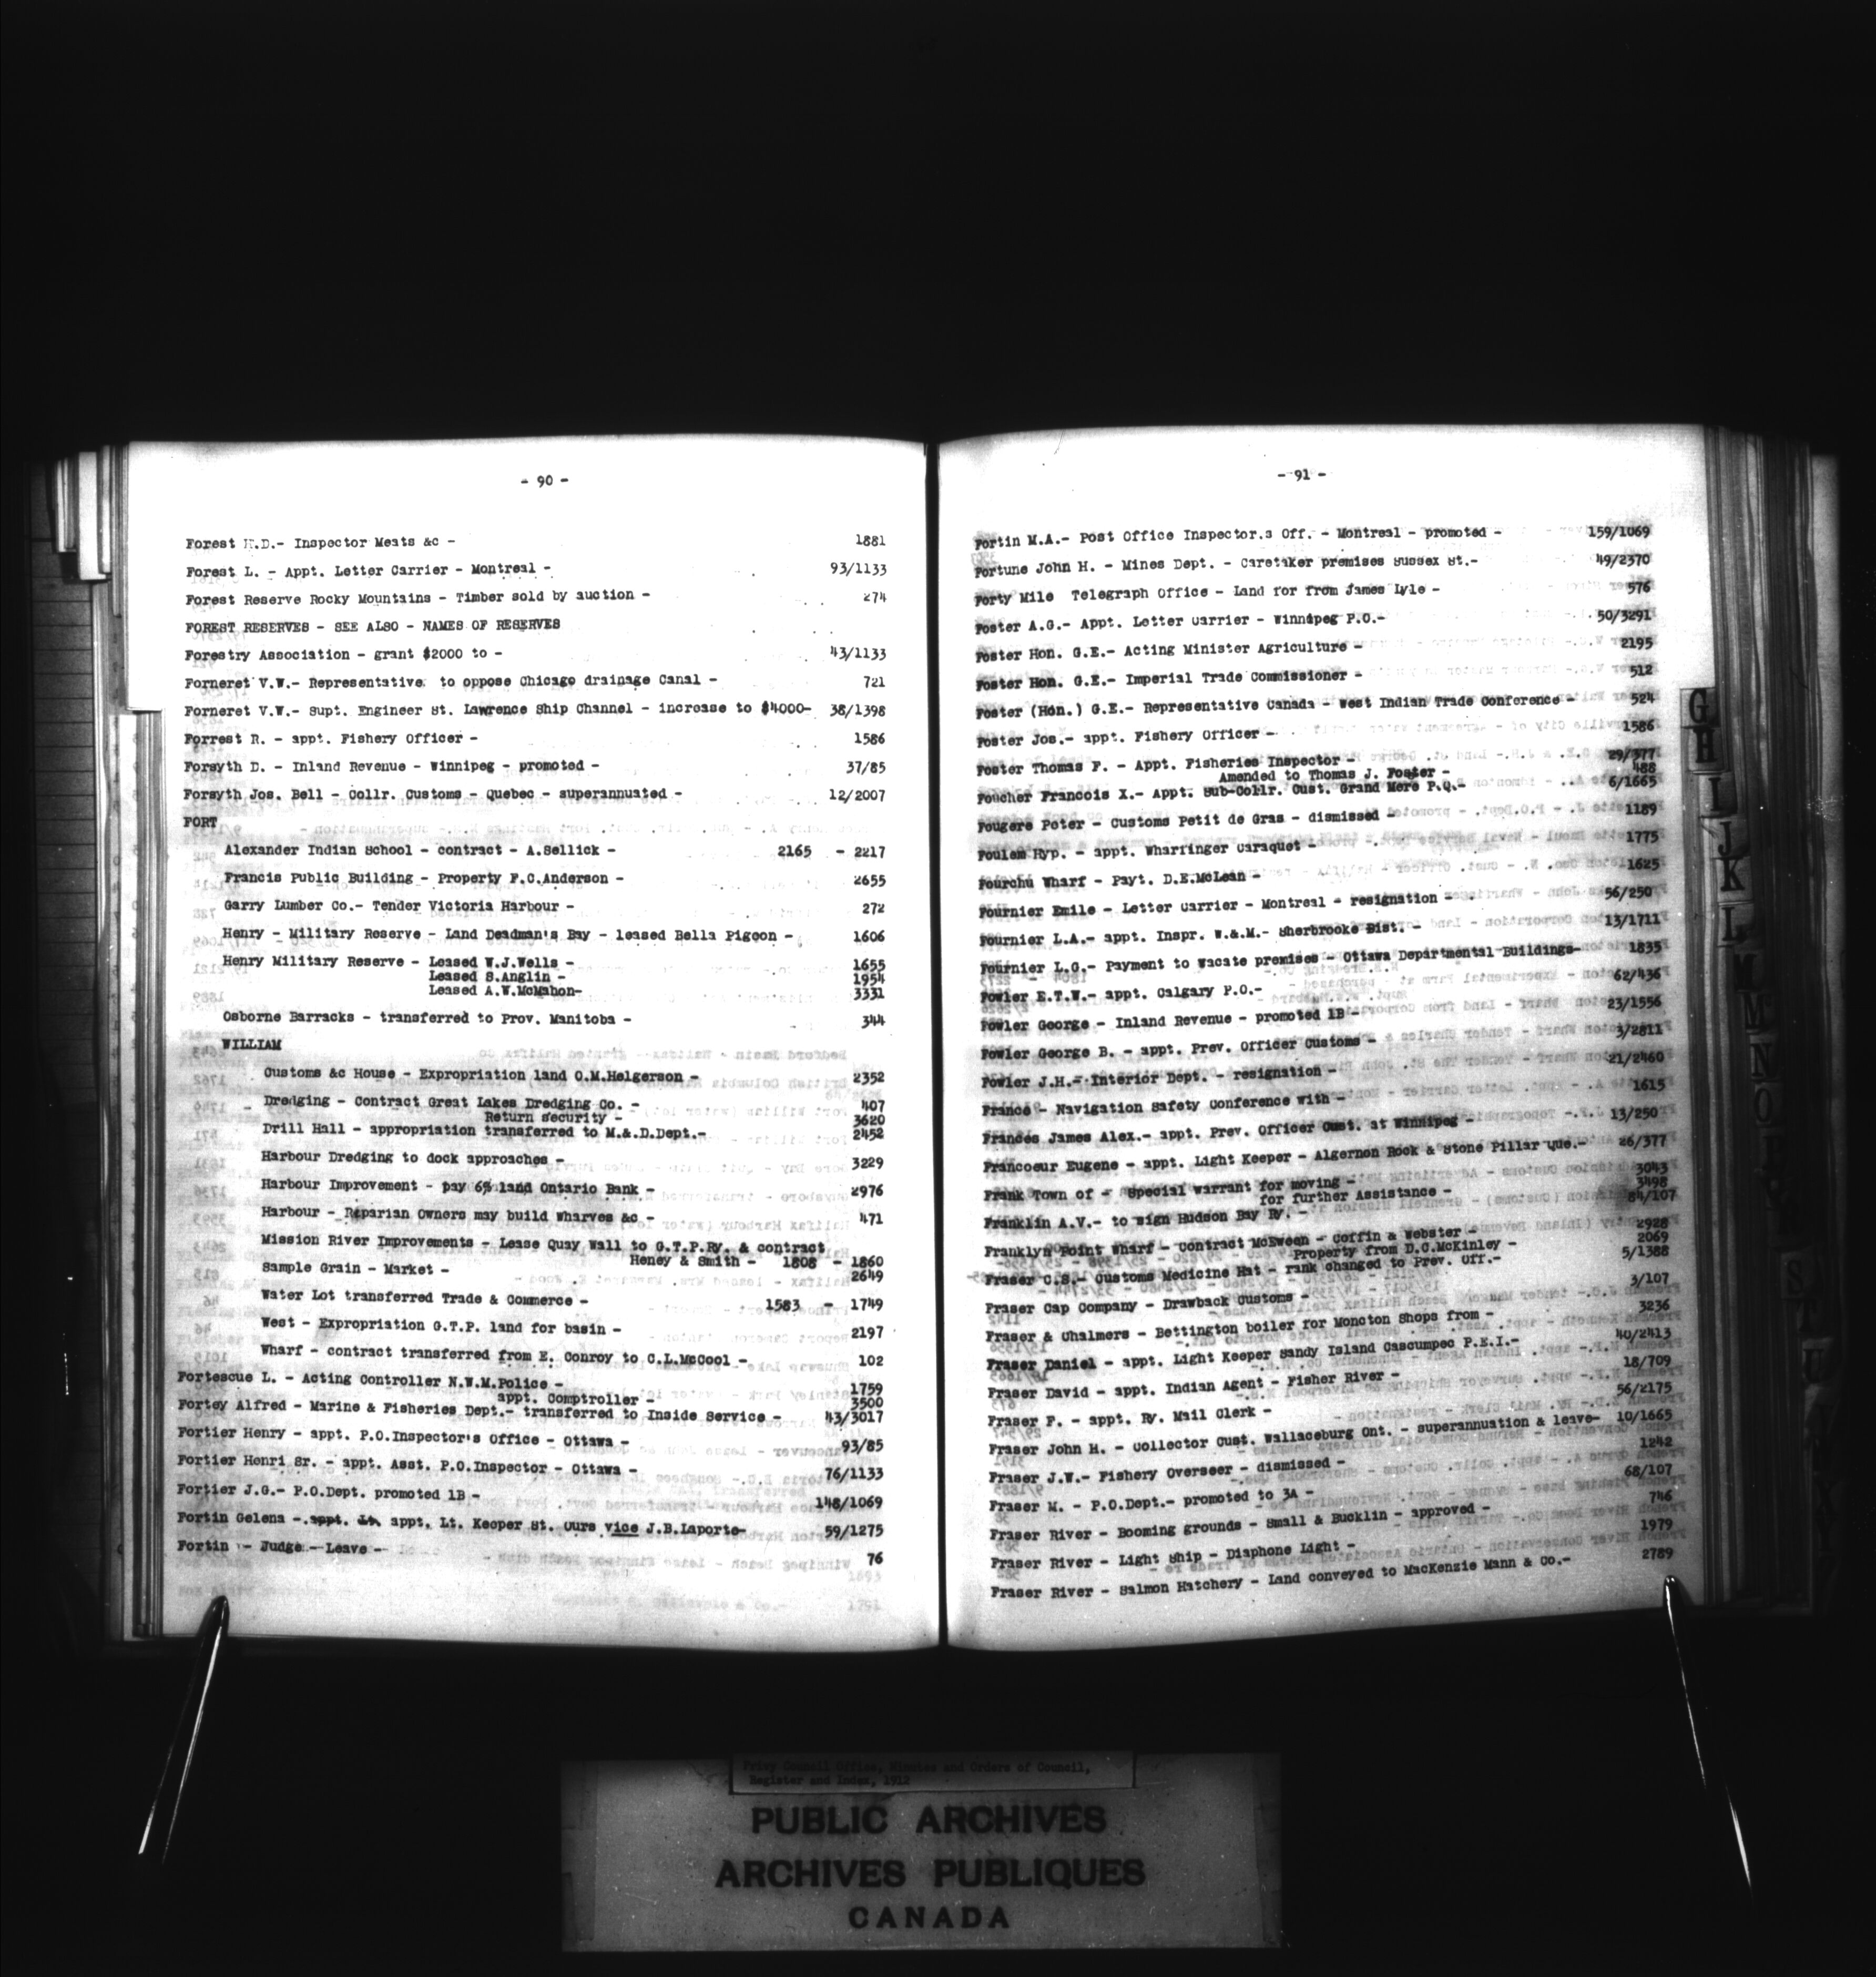 - 90 -
Forest H.D.- Inspector Meats &c - 1881
Forest L. - Appt. Letter Carrier - Montreal - 93/1133
Forest Reserve Rocky Mountains - Timber sold by auction - 274
FOREST RESERVES - SEE ALSO - NAMES OF RESERVES
Forestry Association - grant $2000 to - 43/1133
Forneret V.W.- Representative to oppose Chicago drainage Canal - 721
Forneret V.W.- Supt. Engineer St. Lawrence Ship Channel - increase to $4000- 38/1398
Forrest R. - appt. Fishery Officer - 1586
Forsyth D. - Inland Revenue - Winnipeg - promoted - 37/85
Forsyth Jos. Bell - Collr. Customs - Quebec - superannuated - 12/2007
FORT
Alexander Indian School - contract - A.Sellick - 2165 - 2217
Francis Public Building - Property F.C.Anderson - 2655
Garry Lumber Co.- Tender Victoria Harbour - 272
Henry - Military Reserve - Land Deadman's Bay - leased Bella Pigeon - 1606
Henry Military Reserve - Leased W.J.Wells - 1655
Leased S.Anglin - 1954
Leased A.W.McMahon- 3331
Osborne Barracks - transferred to Prov. Manitoba - 344
WILLIAM
Customs &c House - Expropriation land O.M.Helgerson - 2352
Dredging - Contract Great Lakes Dredging Co. - 407
Return Security - 3620
Drill Hall - appropriation transferred to M.&.D.Dept.- 2452
Harbour Dredging to dock approaches - 3229
Harbour Improvement - pay 6% land Ontario Bank - 2976
Harbour - Reparian Owners may build wharves &c - 471
Mission River Improvements - Lease Quay Wall to G.T.P.Ry. & contract
Heney & Smith - 1808 - 1860
Sample Grain - Market - 2649
Water Lot transferred Trade & Commerce - 1583 - 1749
West - Expropriation G.T.P. land for basin - 2197
Wharf - contract transferred from E. Conroy to C.L.McCool - 102
Fortescue L. - Acting Controller N.W.M.Police - 1759
appt. Comptroller - 3500
Fortey Alfred - Marine & Fisheries Dept.- transferred to Inside Service - 43/3017
Fortier Henry - appt. P.O.Inspector's Office - Ottawa - 93/85
Fortier Henri Sr. - appt. Asst. P.O.Inspector - Ottawa - 76/1133
Fortier J.G.- P.O.Dept. promoted 1B - 148/1069
Fortin Gelena - appt. Lt. appt. Lt. Keeper St. Ours vice J.B.Laporte- 59/1275
Fortin - Judge - Leave - 76
- 91 -
Fortin M.A.- Post Office Inspector.s Off. - Montreal - promoted - 159/1069
Fortune John H. - Mines Dept. - Caretaker premises Sussex St.- 49/2370
Forty Mile Telegraph Office - Land for from James Lyle - 576
Foster A.G.- Appt. Letter Carrier - Winnipeg P.O.- 50/3291
Foster Hon. G.E.- Acting Minister Agriculture - 2195
Foster Hon. G.E.- Imperial Trade Commissioner - 512
Foster (Hon.) G.E.- Representative Canada - West Indian Trade Conference - 524
Foster Jos.- appt. Fishery Officer - 1586
Foster Thomas F. - Appt. Fisheries Inspector - 29/377
Amended to Thomas J. Foster - 488
Foucher Francois X.- Appt. Sub-Collr. Cust. Grand Mere P.Q.- 6/1665
Fougere Peter - Customs Petit de Gras - dismissed - 1189
Foulem Hyp. - appt. Wharfinger Caraquet - 1775
Fourchu Wharf - Payt. D.E.McLean - 1625
Fournier Emile - Letter Carrier - Montreal - resignation - 56/250
Fournier L.A.- appt. Inspr. W.&.M.- Sherbrooke Dist. - 13/1711
Fournier L.G.- Payment to vacate premises - Ottawa Departmental Buildings- 1835
Fowler E.T.W.- appt. Calgary P.O.- 62/436
Fowler George - Inland Revenue - promoted 1B - 23/1556
Fowler George B. - appt. Prev. Officer Customs - 3/2811
Fowler J.H.- Interior Dept. - resignation - 21/2460
France - Navigation Safety Conference with - 1615
Frances James Alex.- appt. Prev. Officer Cust. at Winnipeg - 13/250
Francoeur Eugene - appt. Light Keeper - Algernon Rock & Stone Pillar Que.- 26/377
Frank Town of - Special warrant for moving - 3043
for further Assistance - 3498
Franklin A.V.- to sign Hudson Bay Ry. - 84/107
Franklyn Point Wharf - contract McEween - Coffin & Webster - 2928
Property from D.C.McKinley - 2069
Fraser C.S.- Customs Medicine Hat - rank changed to Prev. Off.- 5/1388
Fraser Cap Company - Drawback Customs - 3/107
Fraser & Chalmers - Bettington boiler for Moncton Shops from - 3236
Fraser Daniel - appt. Light Keeper Sandy Island Cascumpec P.E.I.- 40/2413
Fraser David - appt. Indian Agent - Fisher River - 18/709
Fraser F. - appt. Ry. Mail Clerk - 56/2175
Fraser John H. - Collector Cust. Wallaceburg Ont. - superannuation & leave- 10/1665
Fraser J.W.- Fishery Overseer - dismissed - 1242
Fraser M. - P.O.Dept.- promoted to 3A - 68/107
Fraser River - Booming grounds - Small & Bucklin - approved - 746
Fraser River - Light Ship - Diaphone Light - 1979
Fraser River - Salmon Hatchery - Land conveyed to MacKenzie Mann & Co.- 2789
G
H
I
J
K
L
M
N
O
S
T
U
Privy Council Office, Minutes and Orders of Council,
Register and Index, 1912
PUBLIC ARCHIVES
ARCHIVES PUBLIQUES
CANADA